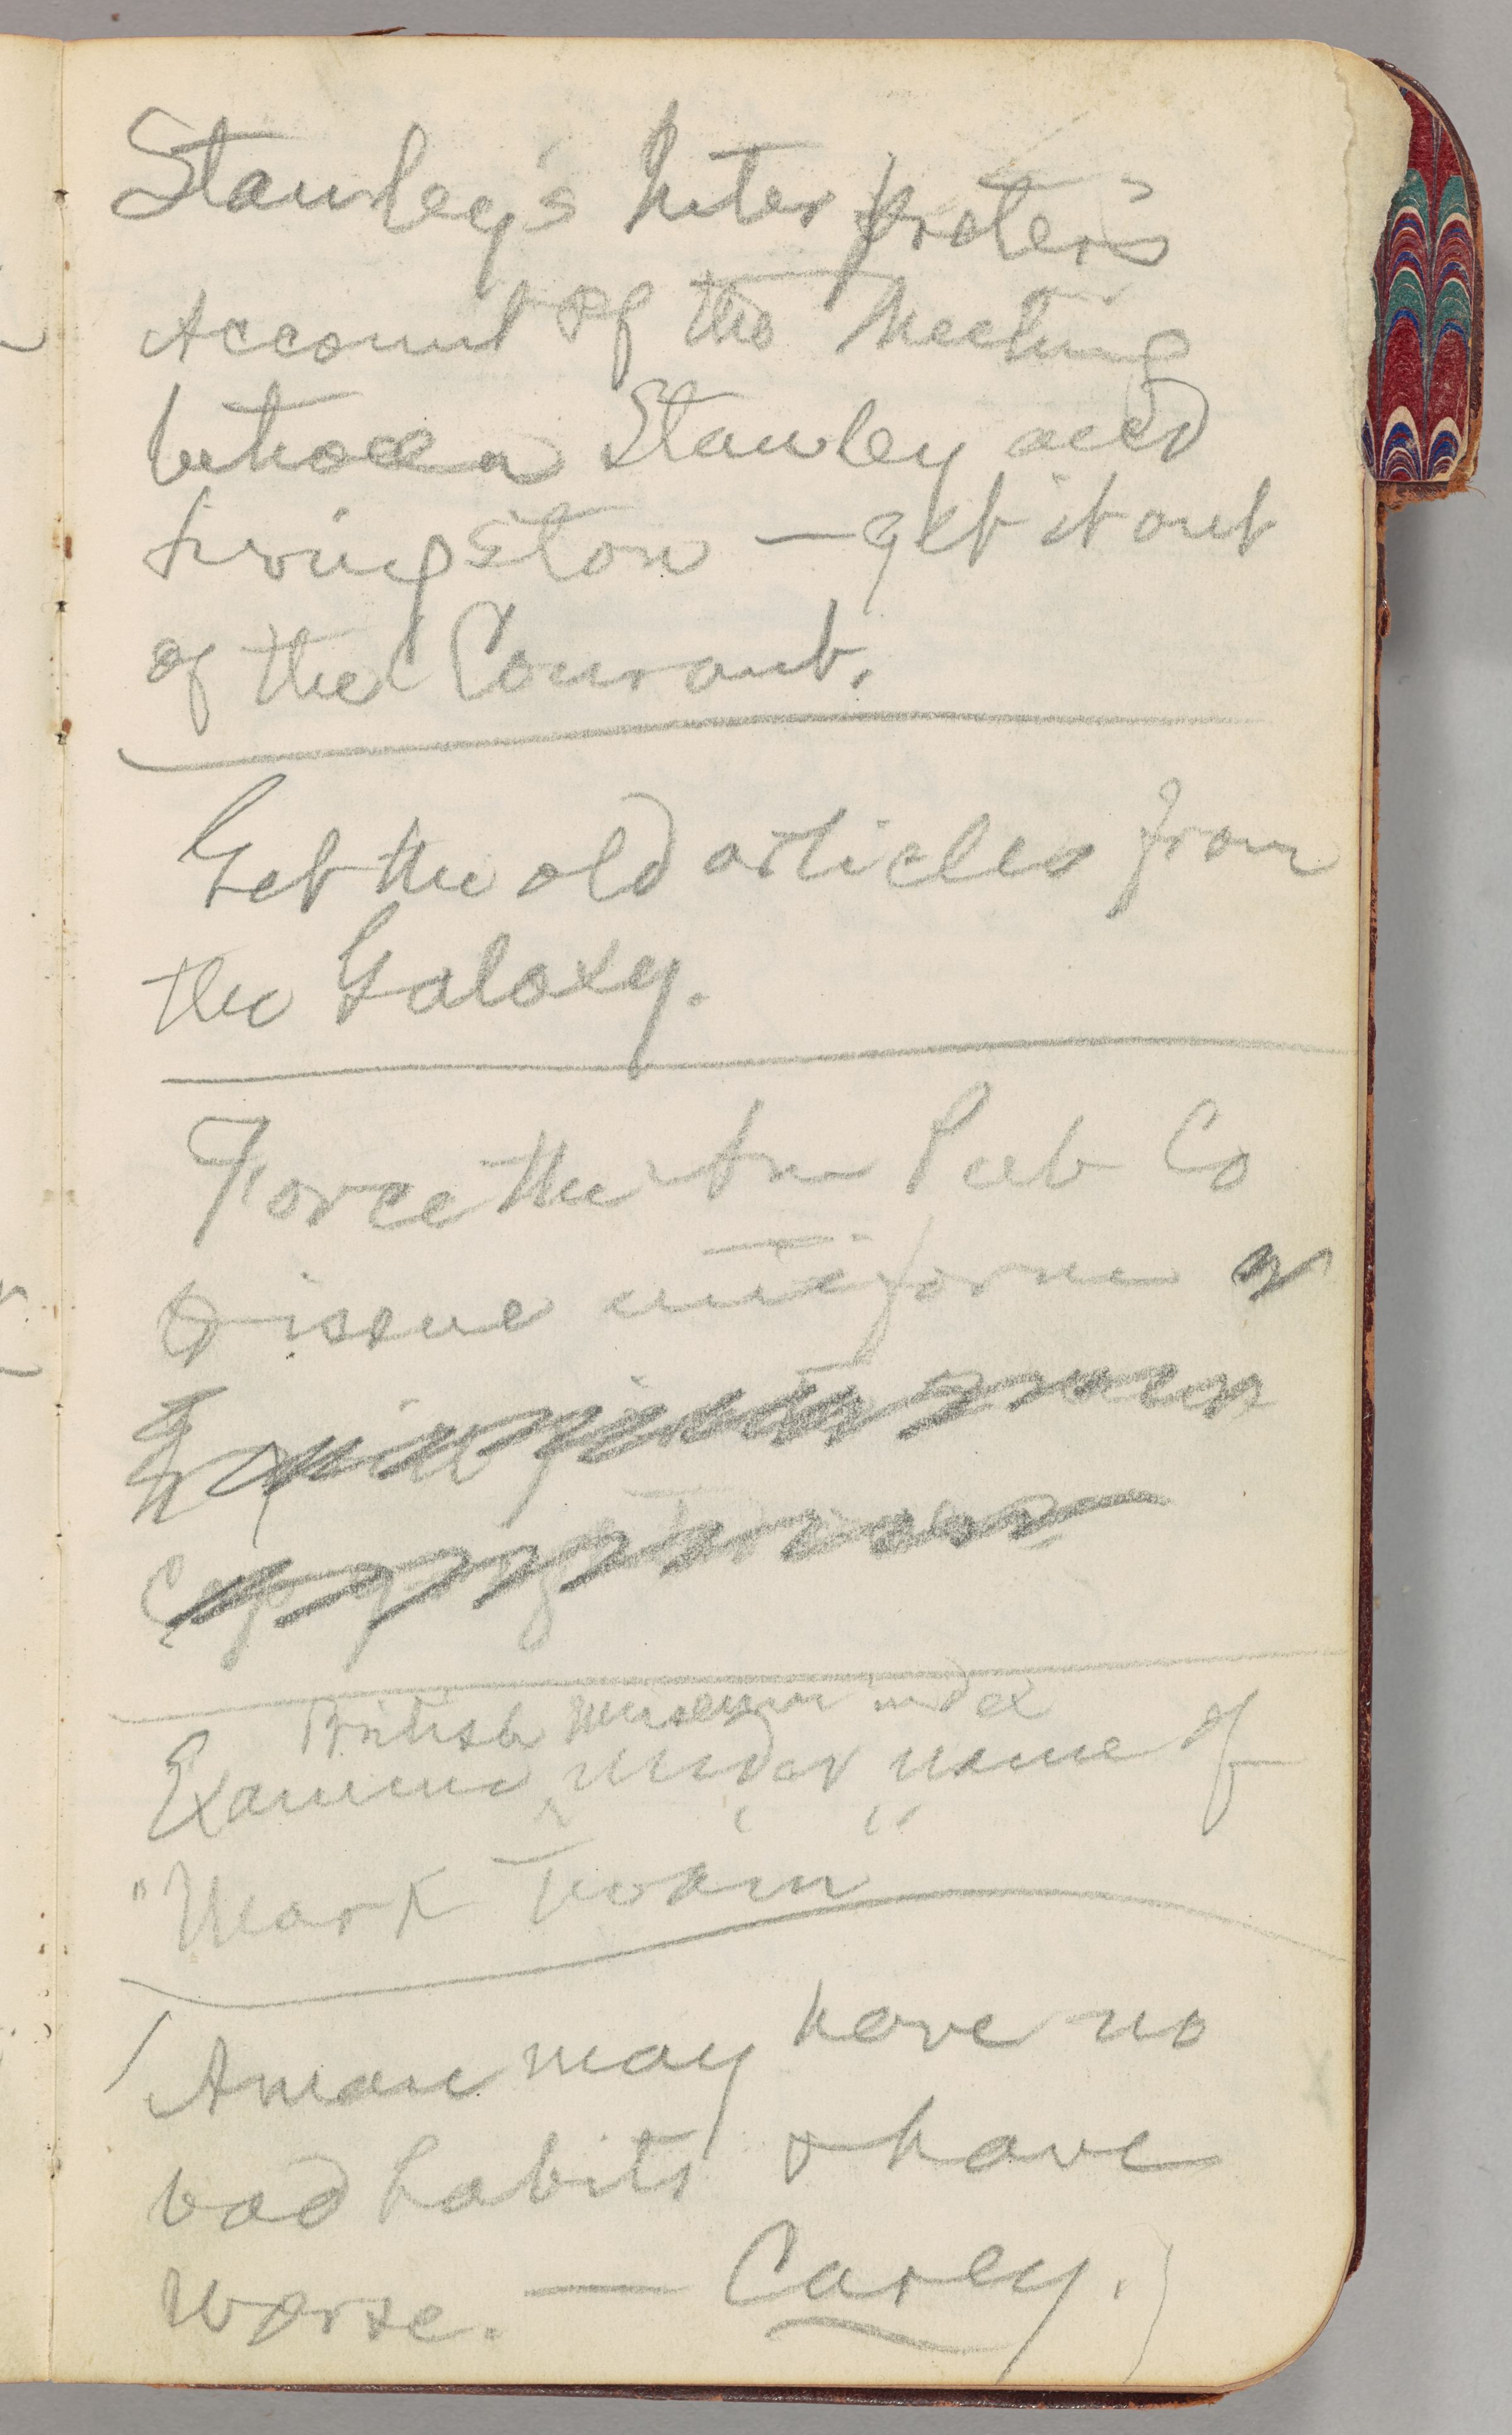 Stanley's Interpreter's
Account of the Meeting
between Stanley and
Livingston — get it out
of the Courant.
Get the old articles from
the Galaxy.
Force the Am Pub Co
to issue uniform &
British Museum index
Examine ^ under name of
"Mark Twain"
(A man may have no
bad habits & have
worse. — Carey.)